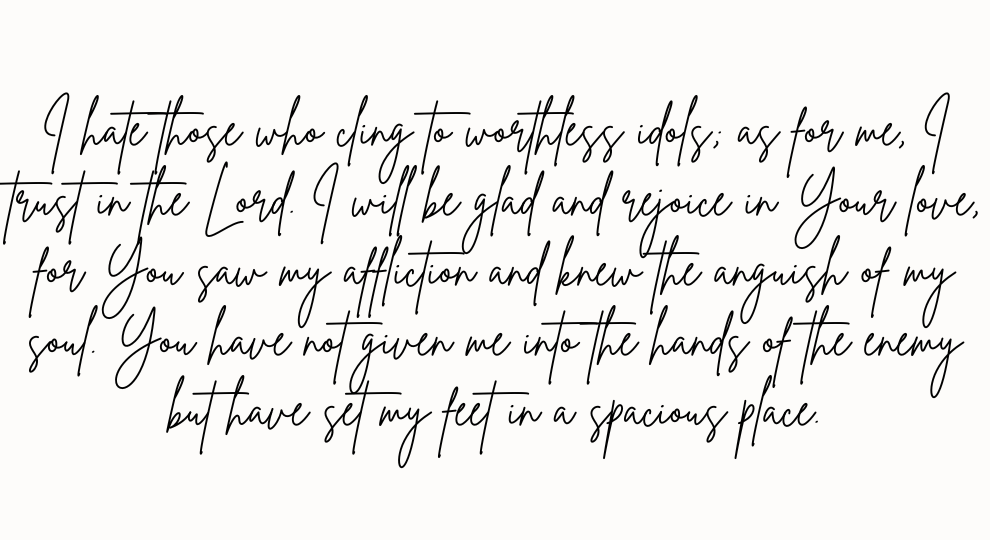 I hate those who cling to worthless idols; as for me, I
trust in the Lord. I will be glad and rejoice in Your love,
for You saw my affliction and knew the anguish of my
soul. You have not given me into the hands of the enemy
but have set my feet in a spacious place.